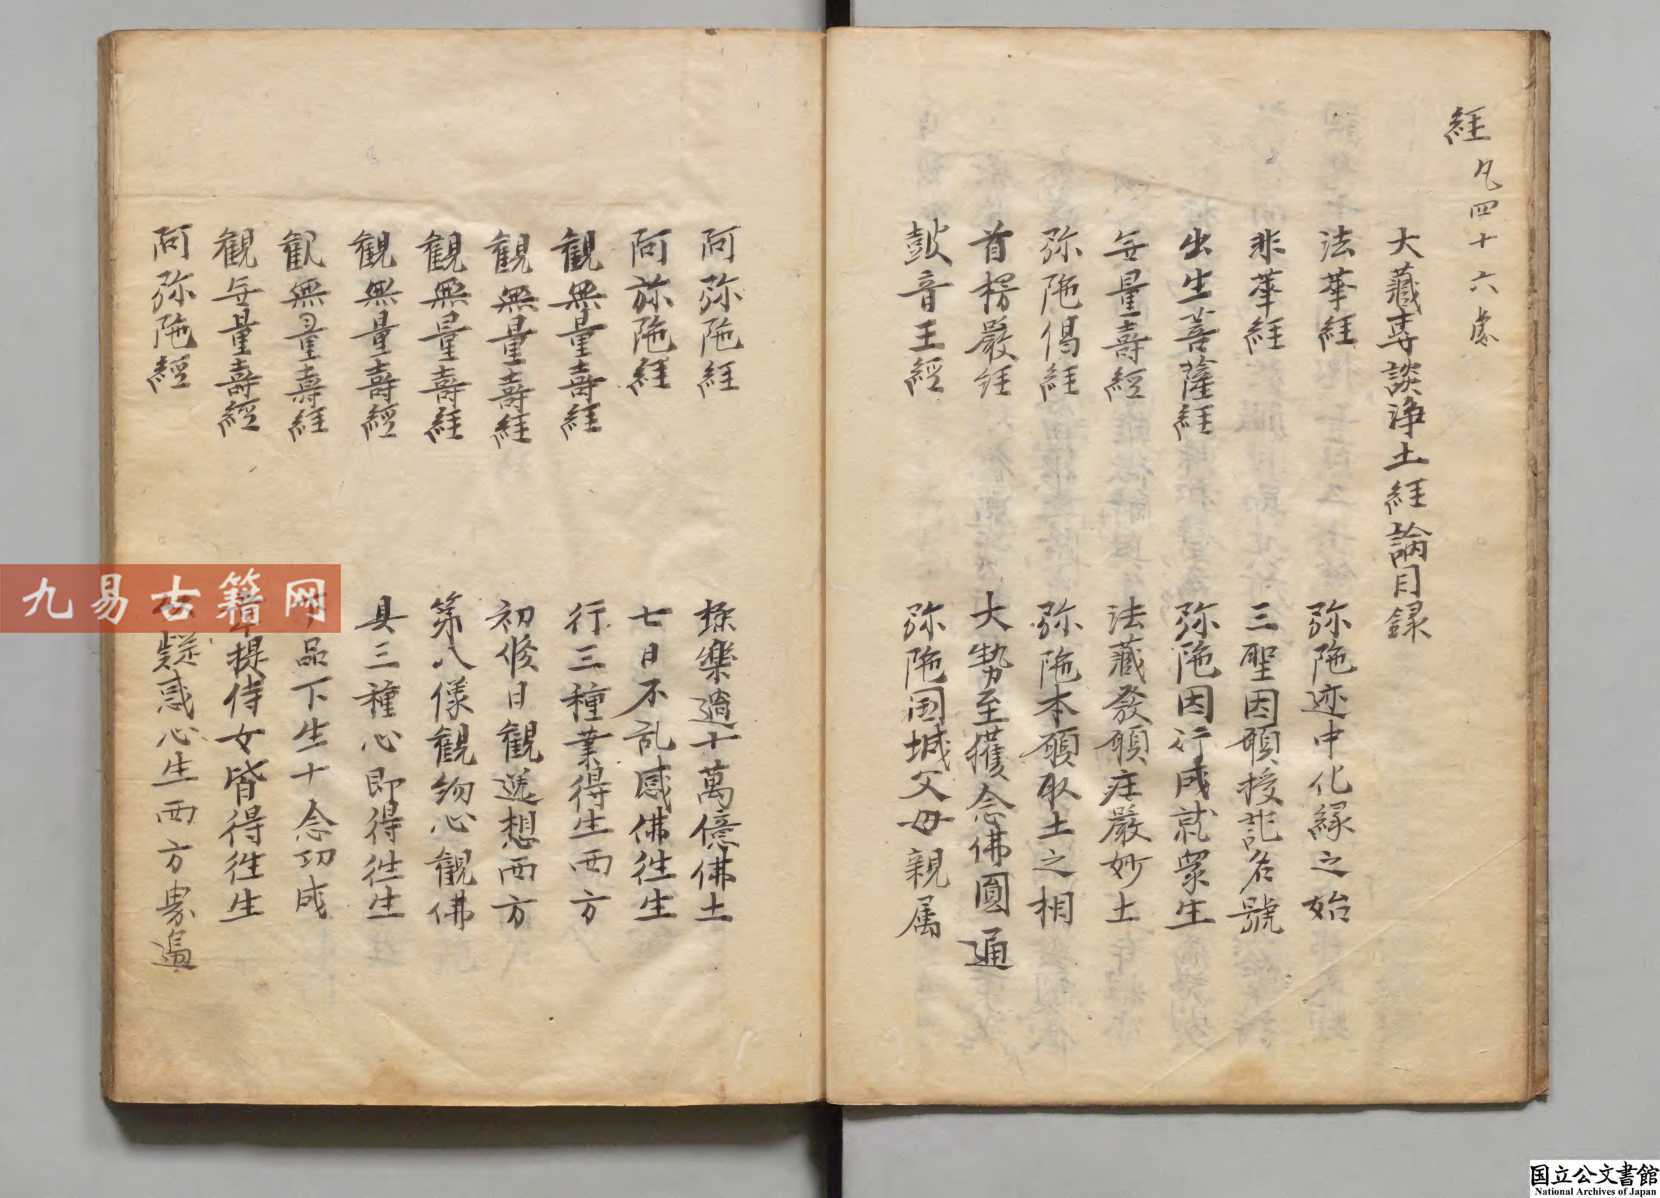 經凡四十六處
大藏專談浄土經論目録
法華經 弥陁迹中化緣之始
悲華經 三聖因願授記名號
出生菩薩經 弥陁因行成就衆生
無量壽經 法藏發願庄嚴妙土
弥陁偈經 弥陁本願取土之相
首楞嚴經 大勢至獲念佛圓通
鼓音王經 弥陁国城父母親属
阿弥陁經 極樂過十萬億佛土
阿弥陁經 七日不乱感佛徃生
觀無量壽經 行三種業得生西方
觀無量壽經 初修日觀送想西方
觀無量壽經 第八像觀物心觀佛
觀無量壽經 具三種心即得徃生
觀無量壽經 品下生十念功成
觀無量壽經 提侍女皆得徃生
阿弥陁經 疑惑心生西方邊
九易古籍网
国立公文書館
National Archives of Japan